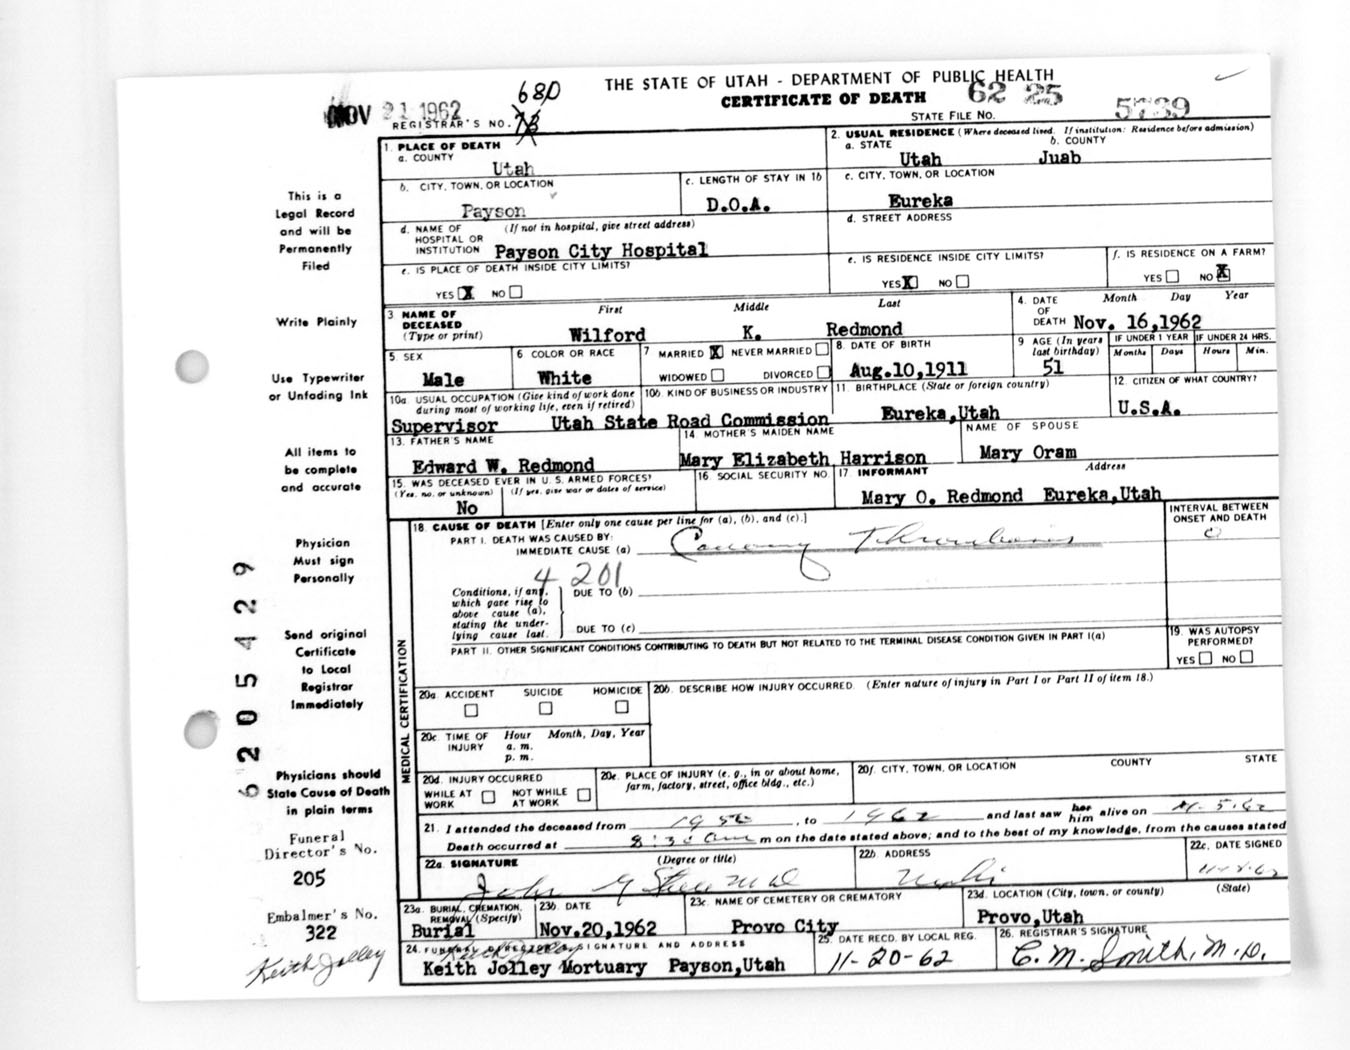 THE STATE OF UTAH - DEPARTMENT OF PUBLIC HEALTH
CERTIFICATE OF DEATH
62 25
STATE FILE NO. 5739
NOV 21 1962
680
REGISTRAR'S NO.
1. PLACE OF DEATH
a. COUNTY
Utah
2. USUAL RESIDENCE (Where deceased lived. If institution: Residence before admission)
a. STATE b. COUNTY
Utah Juab
b. CITY, TOWN, OR LOCATION
Payson
c. LENGTH OF STAY IN 1b
D.O.A.
c. CITY, TOWN, OR LOCATION
Eureka
d. NAME OF HOSPITAL OR INSTITUTION (If not in hospital, give street address)
Payson City Hospital
d. STREET ADDRESS
e. IS PLACE OF DEATH INSIDE CITY LIMITS?
YES X NO
e. IS RESIDENCE INSIDE CITY LIMITS?
YES X NO
f. IS RESIDENCE ON A FARM?
YES NO X
3 NAME OF DECEASED (Type or print)
First Middle Last
Wilford K. Redmond
4. DATE OF DEATH Month Day Year
Nov. 16,1962
5. SEX
Male
6 COLOR OR RACE
White
7 MARRIED X NEVER MARRIED
WIDOWED DIVORCED
8. DATE OF BIRTH
Aug.10,1911
9 AGE (In years last birthday)
51
IF UNDER 1 YEAR
Months Days
IF UNDER 24 HRS.
Hours Min.
10a. USUAL OCCUPATION (Give kind of work done during most of working life, even if retired)
Supervisor
10b. KIND OF BUSINESS OR INDUSTRY
Utah State Road Commission
11. BIRTHPLACE (State or foreign country)
Eureka,Utah
12. CITIZEN OF WHAT COUNTRY?
U.S.A.
13. FATHER'S NAME
Edward W. Redmond
14. MOTHER'S MAIDEN NAME
Mary Elizabeth Harrison
NAME OF SPOUSE
Mary Oram
15. WAS DECEASED EVER IN U.S. ARMED FORCES?
(Yes, no, or unknown) (If yes, give war or dates of service)
No
16. SOCIAL SECURITY NO.
17. INFORMANT Address
Mary O. Redmond Eureka,Utah
18. CAUSE OF DEATH [Enter only one cause per line for (a), (b), and (c).]
PART I. DEATH WAS CAUSED BY:
IMMEDIATE CAUSE (a) Coronary Thrombosis
INTERVAL BETWEEN ONSET AND DEATH
4 201
Conditions, if any, which gave rise to above cause (a), stating the underlying cause last.
DUE TO (b)
DUE TO (c)
PART II. OTHER SIGNIFICANT CONDITIONS CONTRIBUTING TO DEATH BUT NOT RELATED TO THE TERMINAL DISEASE CONDITION GIVEN IN PART I(a)
19. WAS AUTOPSY PERFORMED?
YES NO
MEDICAL CERTIFICATION
20a. ACCIDENT SUICIDE HOMICIDE
20b. DESCRIBE HOW INJURY OCCURRED. (Enter nature of injury in Part I or Part II of item 18.)
20c. TIME OF INJURY Hour Month, Day, Year
a. m.
p. m.
20d. INJURY OCCURRED
WHILE AT WORK NOT WHILE AT WORK
20e. PLACE OF INJURY (e. g., in or about home, farm, factory, street, office bldg., etc.)
20f. CITY, TOWN, OR LOCATION COUNTY STATE
21. I attended the deceased from 1950, to 1962 and last saw her him alive on
Death occurred at 8:30 am m on the date stated above; and to the best of my knowledge, from the causes stated
22a. SIGNATURE (Degree or title)
John G M D
22b. ADDRESS
22c. DATE SIGNED
23a. BURIAL, CREMATION, REMOVAL (Specify)
Burial
23b. DATE
Nov.20,1962
23c. NAME OF CEMETERY OR CREMATORY
Provo City
23d. LOCATION (City, town, or county) (State)
Provo,Utah
24. FUNERAL DIRECTOR'S SIGNATURE AND ADDRESS
Keith Jolley
Keith Jolley Mortuary Payson,Utah
25. DATE RECD. BY LOCAL REG.
11-20-62
26. REGISTRAR'S SIGNATURE
C. M. Smith, M.D.
This is a
Legal Record
and will be
Permanently
Filed
Write Plainly
Use Typewriter
or Unfading Ink
All items to
be complete
and accurate
Physician
Must sign
Personally
Send original
Certificate
to Local
Registrar
Immediately
Physicians should
State Cause of Death
in plain terms
Funeral
Director's No.
205
Embalmer's No.
322
Keith Jolley
6205429